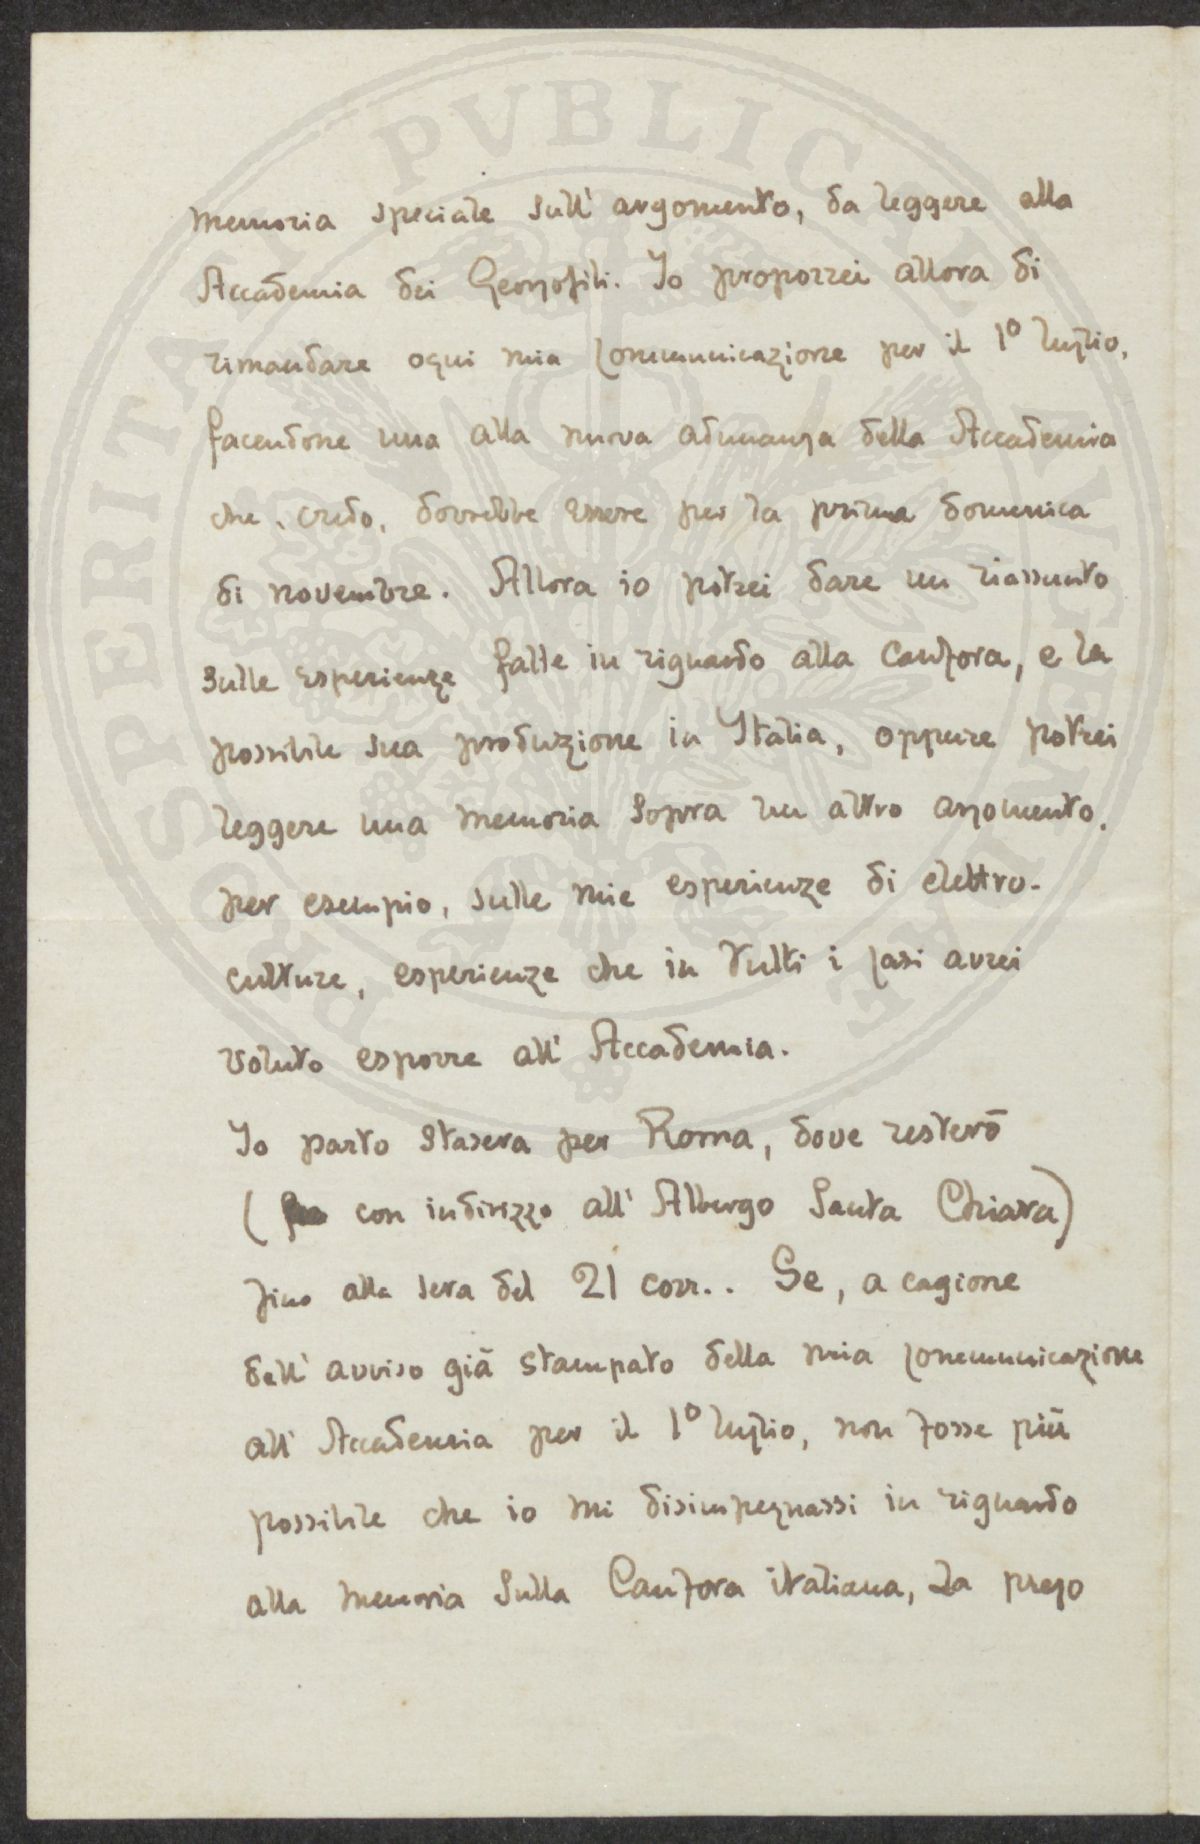 PROSPERITATI PVBLICAE AVGENDAE
memoria speciale sull' argomento, da leggere alla
Accademia dei Georgofili. Io proporrei allora di
rimandare ogni mia communicazione per il 1º luglio,
facendone una alla nuova adunanza della Accademia
che, credo, dovrebbe essere per la prima domenica
di novembre. Allora io potrei dare un riassunto
sulle esperienze fatte in riguardo alla Canfora, e la
possibile sua produzione in Italia, oppure potrei
leggere una memoria sopra un altro argomento,
per esempio, sulle mie esperienze di elettro-
culture, esperienze che in tutti i casi avrei
voluto esporre all' Accademia.
Io parto stasera per Roma, dove resterò
( con indirizzo all' Albergo Santa Chiara)
fino alla sera del 21 corr.. Se, a cagione
dell' avviso già stampato della mia communicazione
all' Accademia per il 1º luglio, non fosse più
possibile che io mi disimpegnassi in riguardo
alla memoria sulla Canfora italiana, La prego